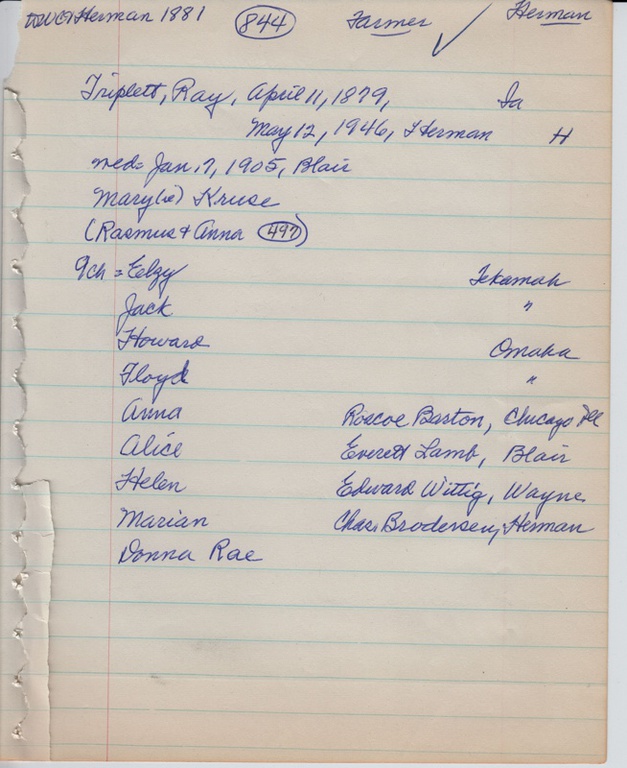 Herman 1881 844 Farmer ✓ Herman
Triplett, Ray, April 11, 1879, Ia
May 12, 1946, Herman H
med= Jan. 7, 1905, Blair
Mary(ie) Kruse
(Rasmus + Anna 497)
9ch = Elzy Tekamah
Jack "
Howard Omaha
Floyd "
Anna Roscoe Barton, Chicago Ill
Alice Everett Lamb, Blair
Helen Edward Wittig, Wayne
Marian Chas. Brodersen, Herman
Donna Rae